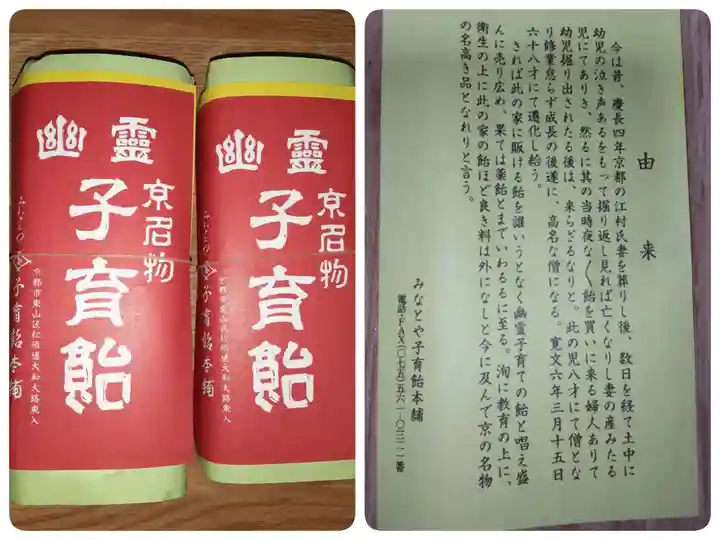 幽靈
京名物
子育飴
みなとや
子育飴本舗
京都市東山区松原通大和大路東入
幽靈
京名物
子育飴
みなとや
子育飴本舗
京都市東山区松原通大和大路東入
由来
今は昔、慶長四年京都の江村氏妻を葬りし後、数日を経て土中に
幼児の泣き声あるをもって掘り返し見れば亡くなりし妻の産みたる
児にてありき、然るに其の当時夜な〱飴を買いに来る婦人ありて
幼児掘り出されたる後は、来らざるなりと。此の児八才にて僧とな
り修業怠らず成長の後遂に、高名な僧になる。寛文六年三月十五日
六十八才にて遷化し給う。
されば此の家に販ける飴を誰いうとなく幽霊子育ての飴と唱え盛
んに売り広め、果ては薬飴とまでいわるるに至る。洵に教育の上に、
衛生の上に此の家の飴ほど良き料は外になしと今に及んで京の名物
の名高き品となれりと言う。
みなとや子育飴本舗
電話・FAX(〇七五)五六一―〇三二一番